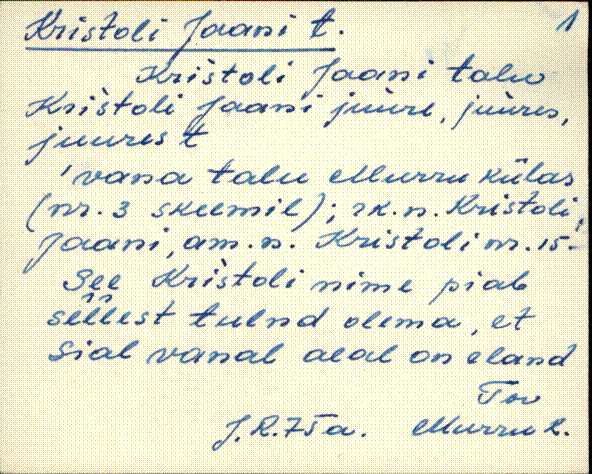 Kristoli Jaani t. 1
Kristoli Jaani talu
Kristoli Jaani juure, juures,
juurest
'vana talu Murru külas
(nr. 3 skeemil); rk.n. Kristoli
Jaani, am.n. Kristoli nr. 15.
See Kristoli nime piab
sellest tulnd olema, et
sial vanal aeal on eland
Tor
J.R. 75 a. Murru k.